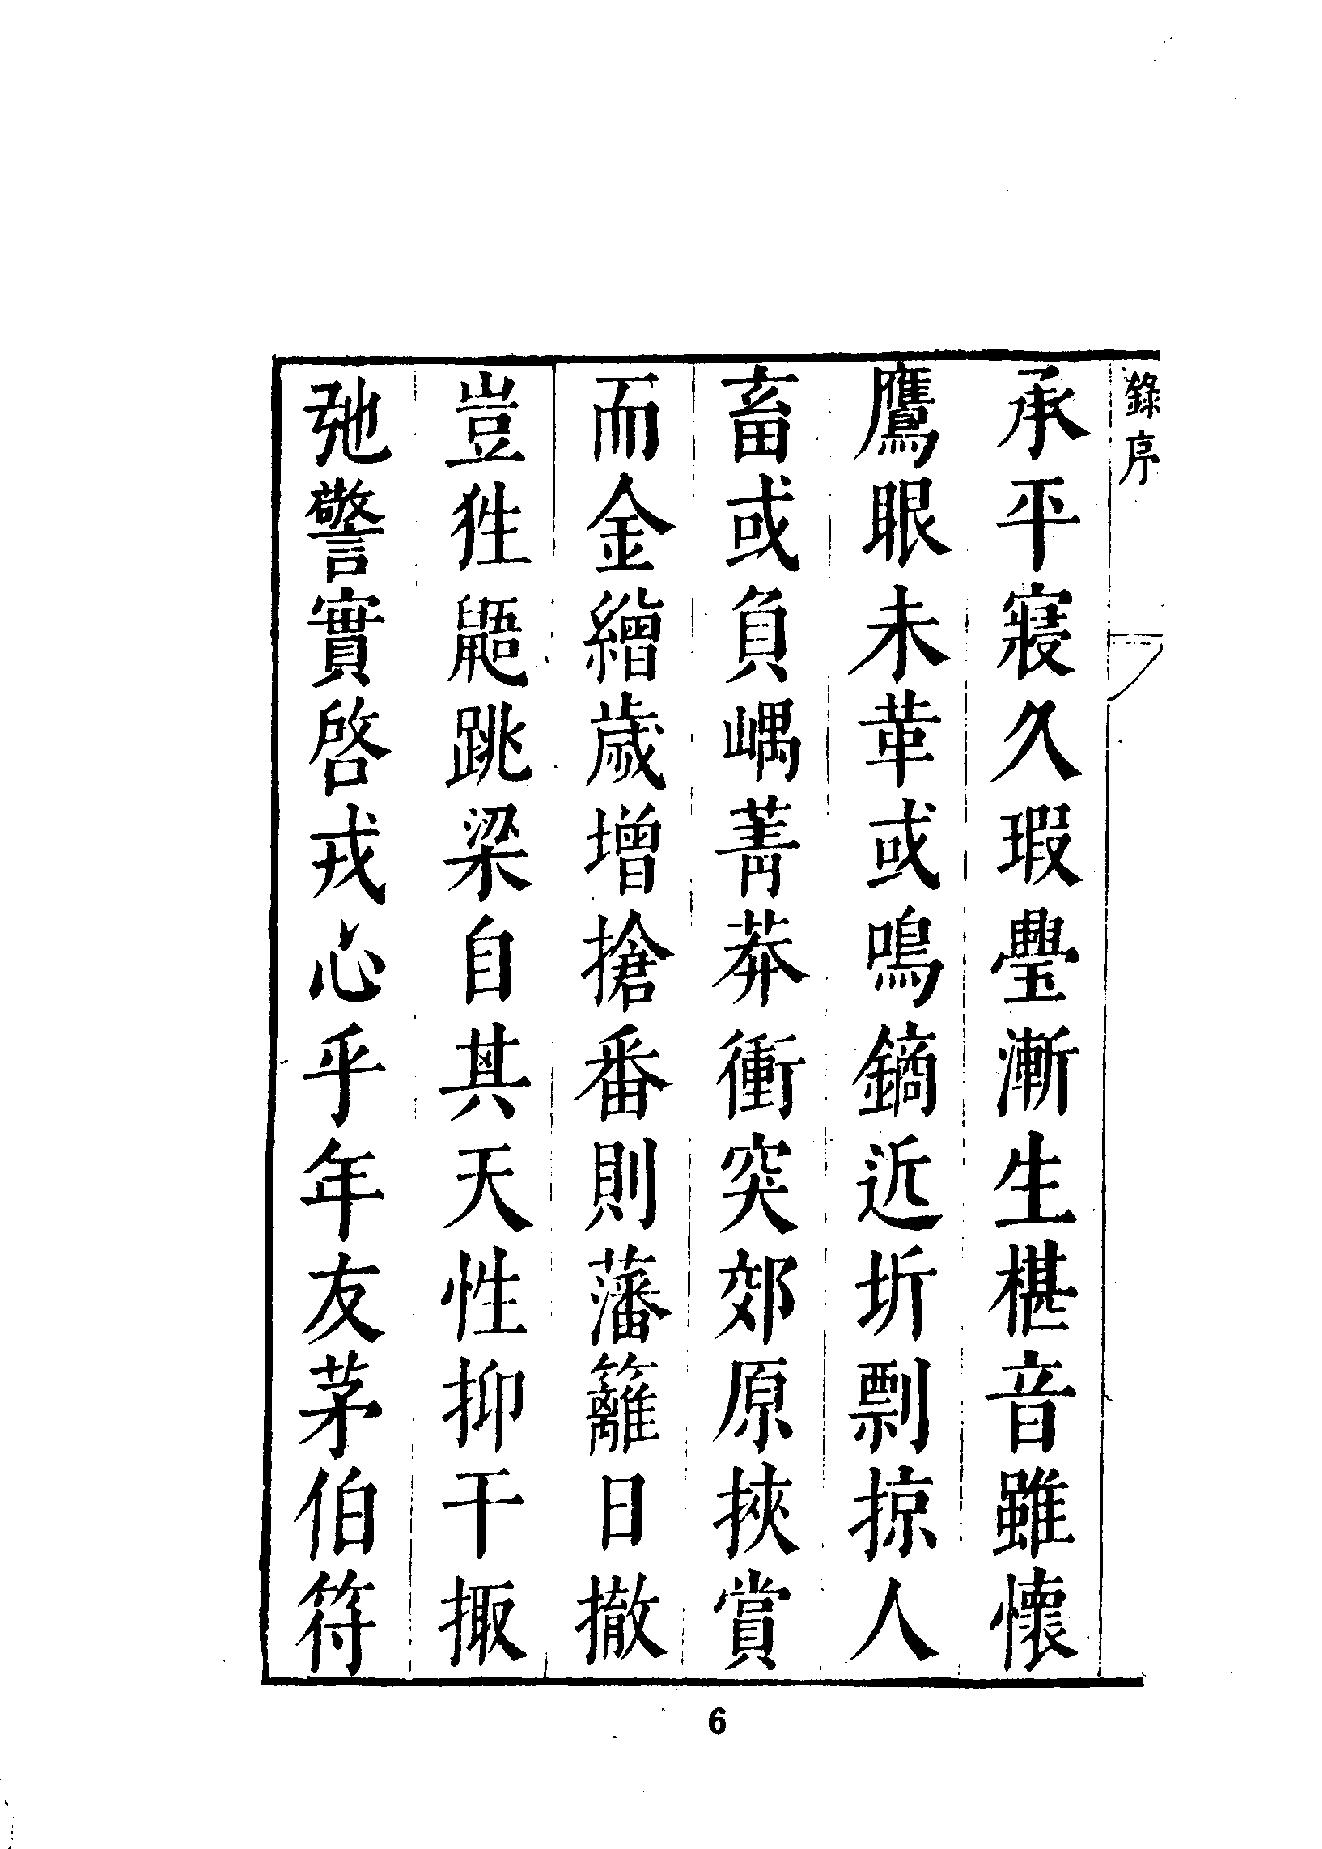 錄序
承平寢久瑕舋漸生椹音雖懷
鷹眼未革或鳴鏑近圻剽掠人
畜或負嵎菁莽衝突郊原挾賞
而金繒歲增搶番則藩籬日撤
豈狌鼯跳梁自其天性抑干掫
弛警實啓戎心乎年友茅伯符
6